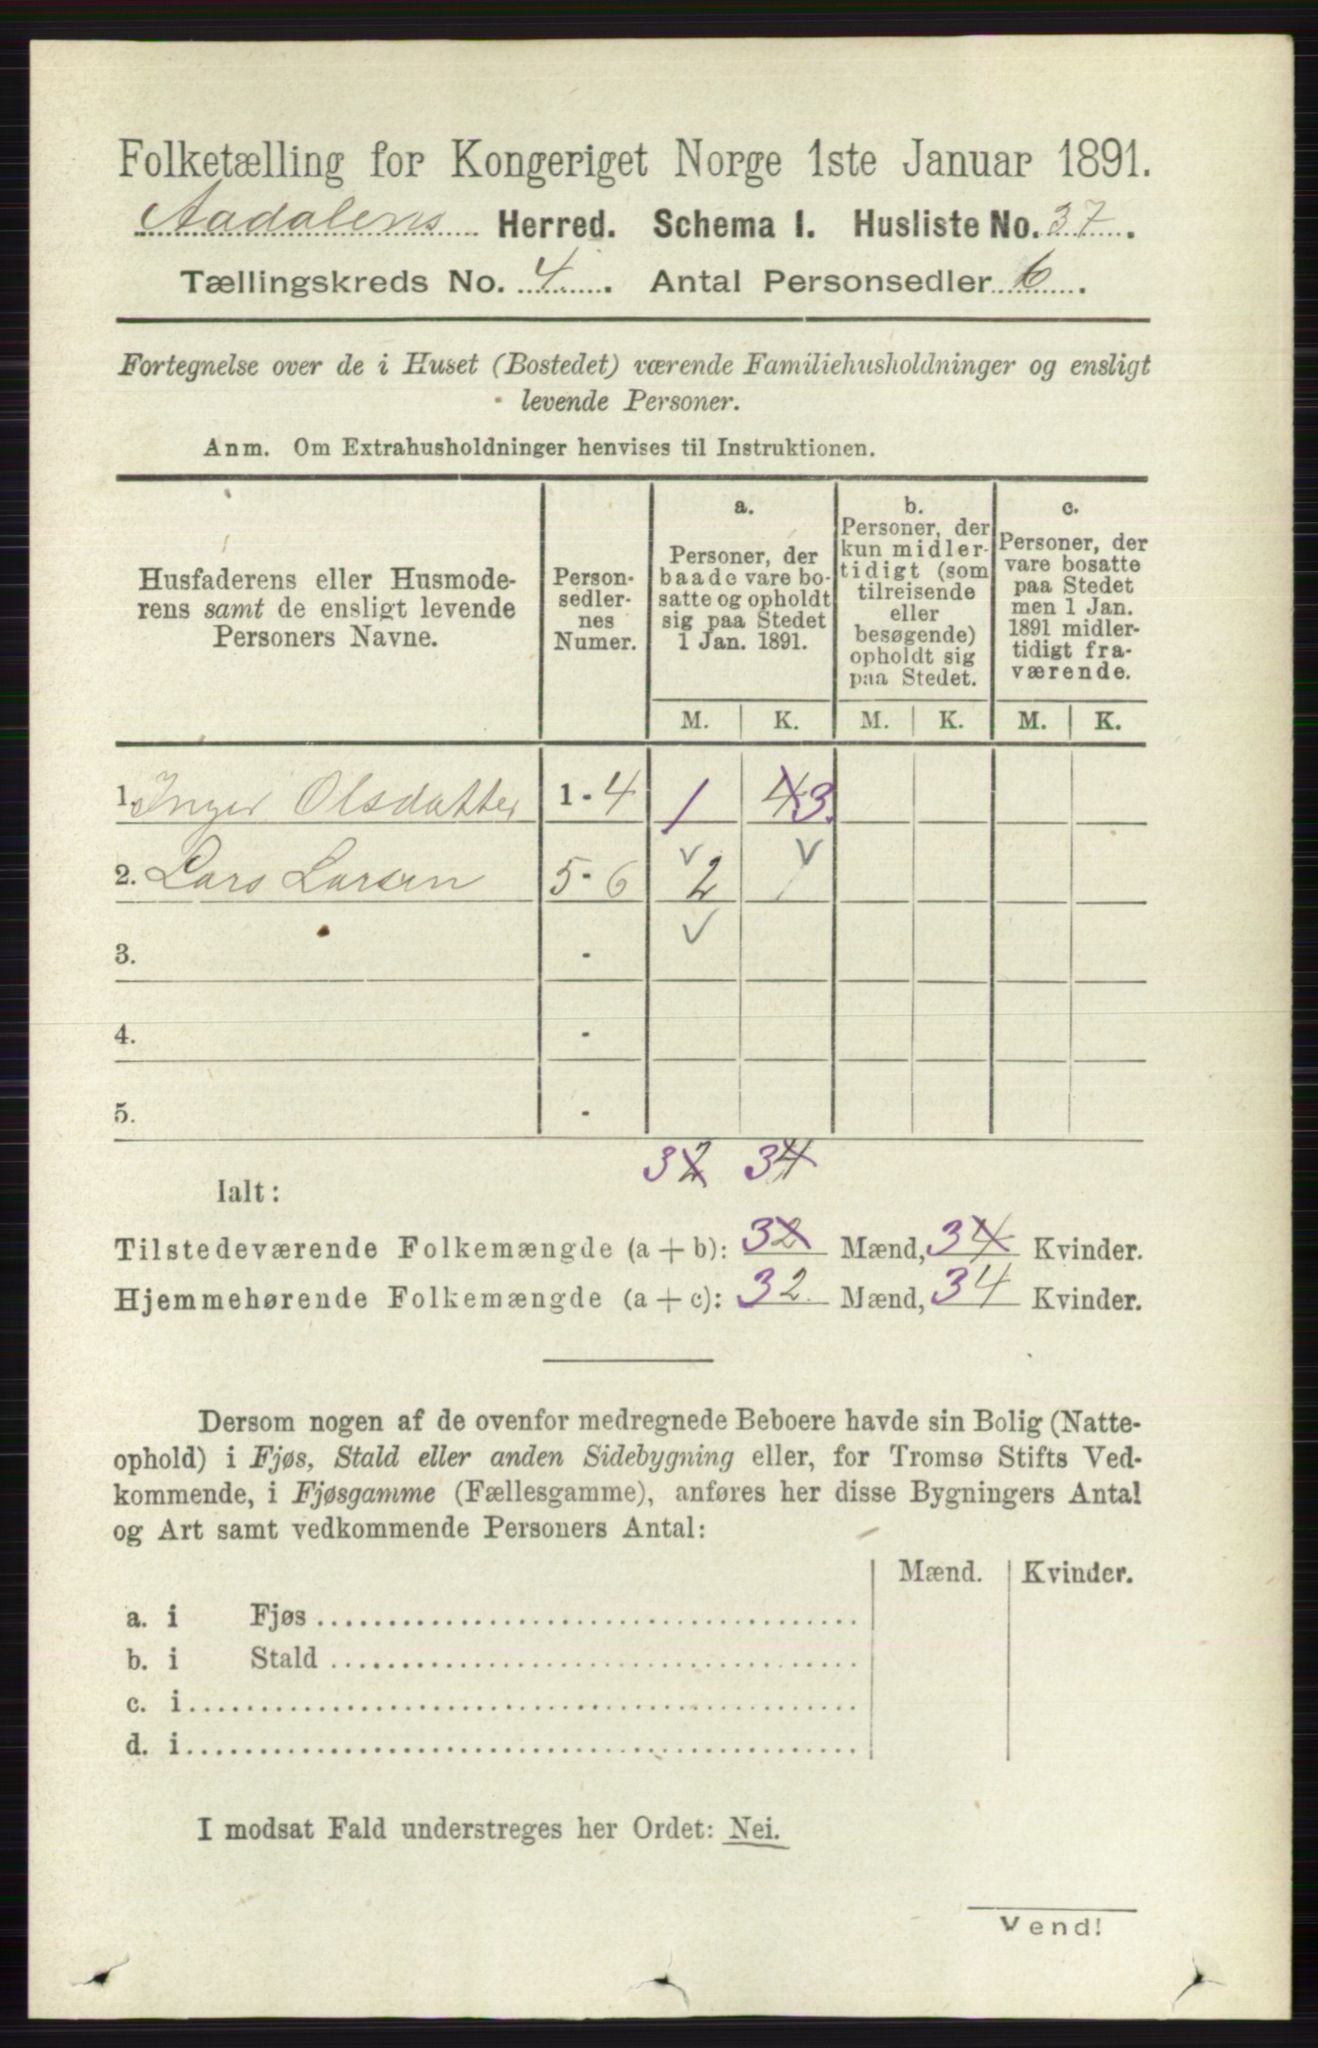 Folketælling for Kongeriget Norge 1ste Januar 1891.
Aadalens Herred. Schema I. Husliste No. 37.
Tællingskreds No. 4. Antal Personsedler 6.
Fortegnelse over de i Huset (Bostedet) værende Familiehusholdninger og ensligt
levende Personer.
Anm. Om Extrahusholdninger henvises til Instruktionen.
Husfaderens eller Husmode-
rens samt de ensligt levende
Personers Navne.
Person-
sedler-
nes
Numer.
a.
Personer, der
baade vare bo-
satte og opholdt
sig paa Stedet
1 Jan. 1891.
b.
Personer, der
kun midler-
tidigt (som
tilreisende
eller
besøgende)
opholdt sig
paa Stedet.
c.
Personer, der
vare bosatte
paa Stedet
men 1 Jan.
1891 midler-
tidigt fra-
værende.
M. K. M. K. M. K.
1. Inger Olsdatter 1 - 4 1 4 3.
2. Lars Larsen 5 - 6 2
3. -
4. -
5. -
Ialt: 3 2 3 4
Tilstedeværende Folkemængde (a + b): 3 2 Mænd, 3 4 Kvinder.
Hjemmehørende Folkemængde (a + c): 3 2 Mænd, 3 4 Kvinder.
Dersom nogen af de ovenfor medregnede Beboere havde sin Bolig (Natte-
ophold) i Fjøs, Stald eller anden Sidebygning eller, for Tromsø Stifts Ved-
kommende, i Fjøsgamme (Fællesgamme), anføres her disse Bygningers Antal
og Art samt vedkommende Personers Antal:
Mænd. Kvinder.
a. i Fjøs
b. i Stald
c. i
d. i
I modsat Fald understreges her Ordet: Nei.
Vend!